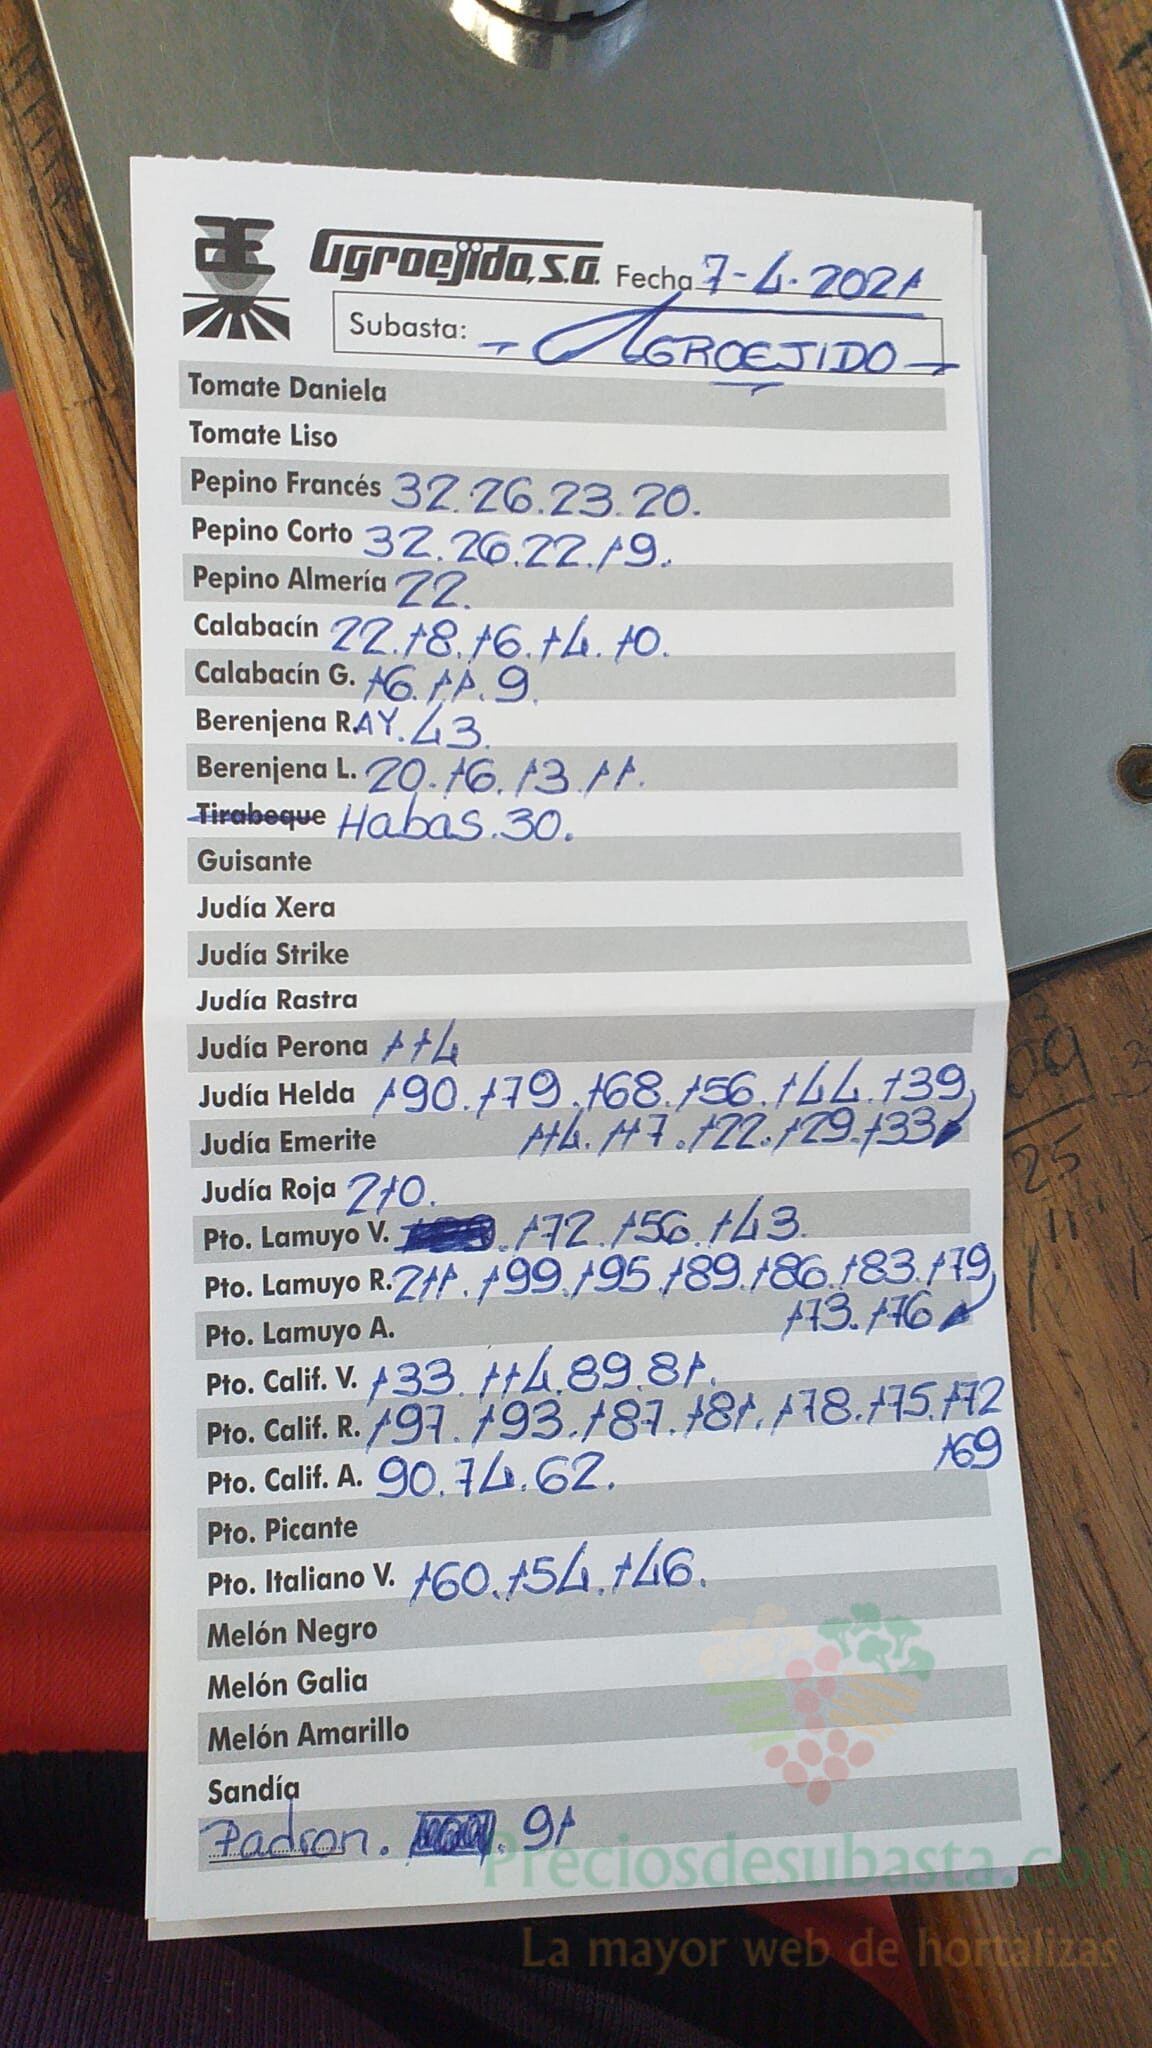 Agroejido, S.A. Fecha 7-4-2021
Subasta: - AGROEJIDO -
Tomate Daniela
Tomate Liso
Pepino Francés 32.26.23.20.
Pepino Corto 32.26.22.19.
Pepino Almería 22.
Calabacín 22.18.16.14.10.
Calabacín G. 16.11.9.
Berenjena R.AY.43.
Berenjena L. 20.16.13.11.
Tirabeque Habas.30.
Guisante
Judía Xera
Judía Strike
Judía Rastra
Judía Perona 114
Judía Helda 190.179.168.156.144.139
Judía Emerite 114.117.122.129.133
Judía Roja 210.
Pto. Lamuyo V. .172.156.143.
Pto. Lamuyo R. 211.199.195.189.186.183.179
Pto. Lamuyo A. 173.176
Pto. Calif. V. 133.114.89.81.
Pto. Calif. R. 197.193.187.181.178.175.172
169
Pto. Calif. A. 90.74.62.
Pto. Picante
Pto. Italiano V. 160.154.146.
Melón Negro
Melón Galia
Melón Amarillo
Sandía
Padron. . 91
Preciosdesubasta.com
La mayor web de hortalizas